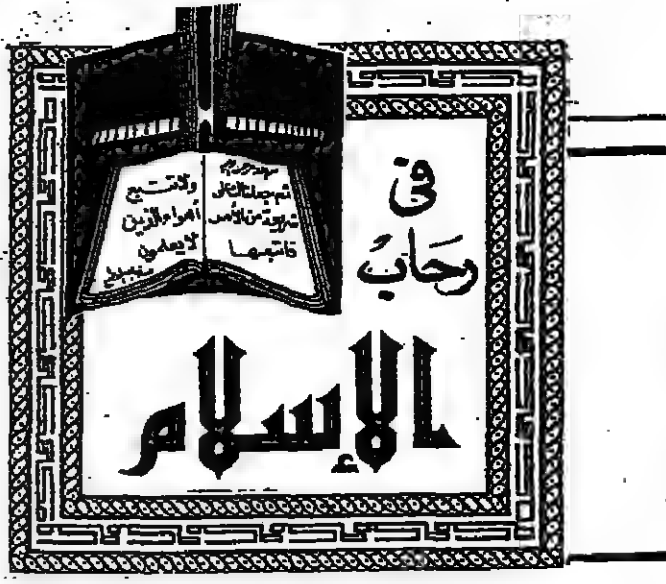 ثم جعلناك على
شريعة من الأمر
فاتبعها
ولا تتبع
أهواء الذين
لا يعلمون
فى
رحاب
الإسلام